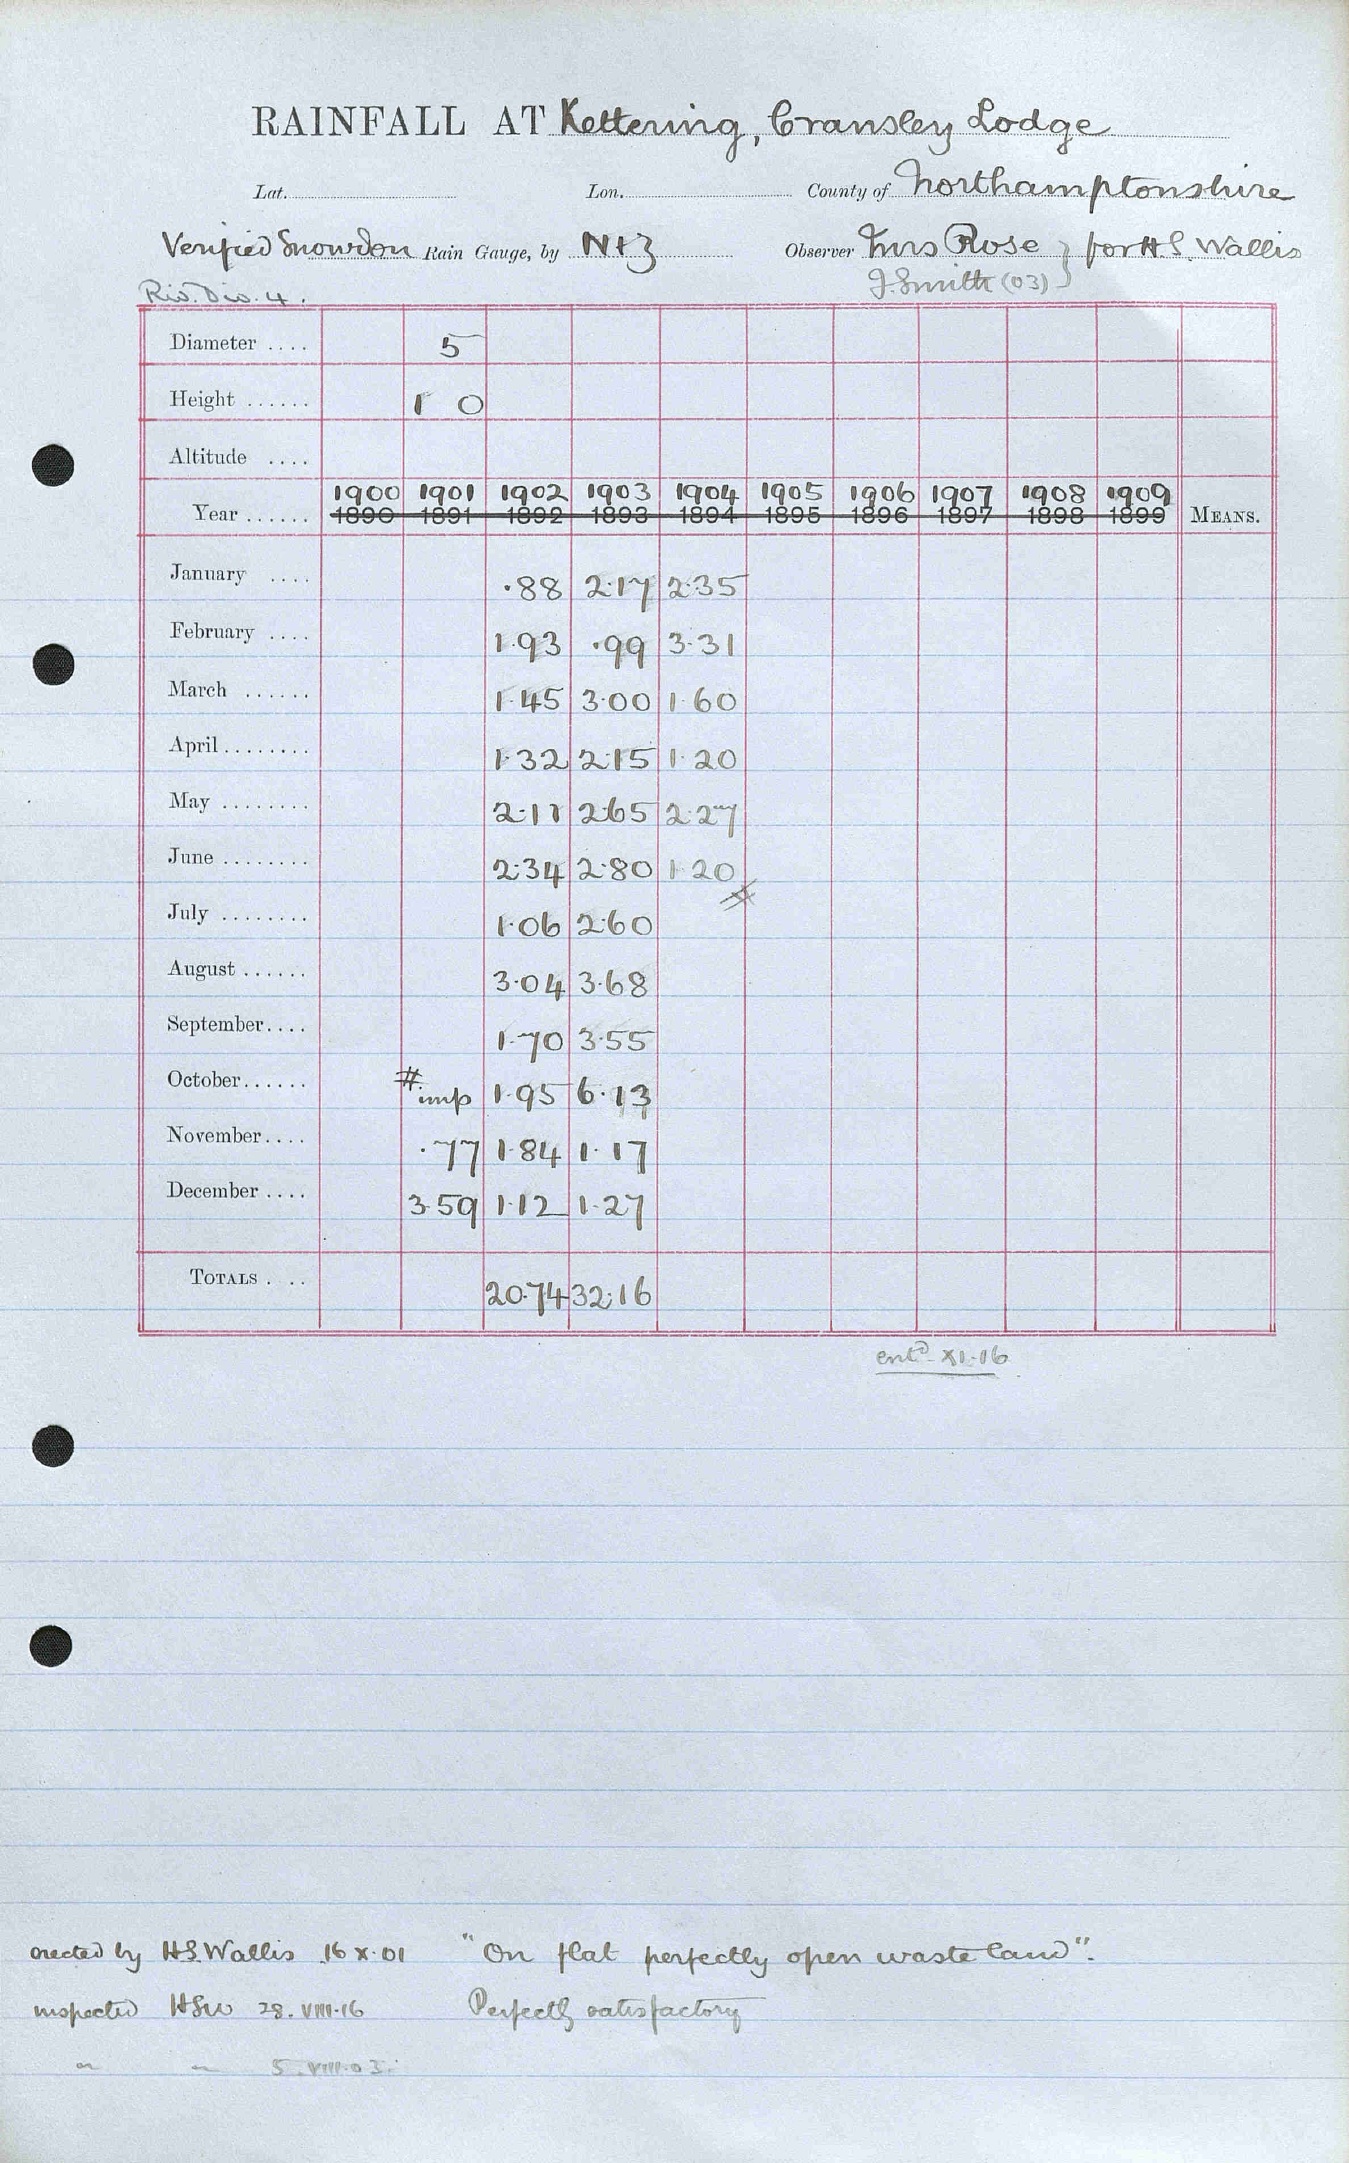 RAINFALL AT Kettering, Cransley Lodge
Lat. Lon. County of Northamptonshire
Verified Snowdon Rain Gauge, by N+Z Observer Mrs Rose } for H.S. Wallis
Riv. Div. 4. J. Smith (03)
Diameter .... 5
Height ...... 1 0
Altitude ....
1900 1901 1902 1903 1904 1905 1906 1907 1908 1909
Year ...... 1890 1891 1892 1893 1894 1895 1896 1897 1898 1899 MEANS.
January .... .88 2.17 2.35
February .... 1.93 .99 3.31
March ...... 1.45 3.00 1.60
April ........ 1.32 2.15 1.20
May ........ 2.11 2.65 2.27
June ........ 2.34 2.80 1.20
July ........ 1.06 2.60
August ...... 3.04 3.68
September .... 1.70 3.55
October ...... # imp 1.95 6.13
November .... .77 1.84 1.17
December .... 3.59 1.12 1.27
TOTALS . .. 20.74 32.16
entd XI.16
erected by H.S. Wallis 16 X.01 "On flat perfectly open waste land".
inspected HSW 28.VIII.16 Perfectly satisfactory
" " 5.VIII.03.